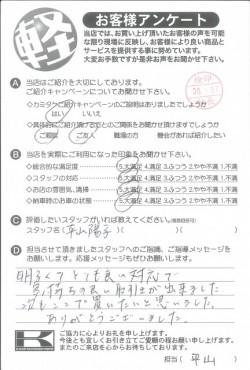 軽
お客様アンケート
当店では、お買い上げ頂いたお客様の声を可能
な限り現場に反映し、お客様により良い商品と
サービスを提供する事に努めています。
大変お手数ですが是非お声をお聞かせ下さい。
A 当店はご紹介を大切にしております。
ご紹介キャンペーンについてお聞かせ下さい。
◇カミタケご紹介キャンペーンのご説明はありましたでしょうか
はい いいえ
ご親戚 ご友人 職場の方 機会があれば紹介したい
B 当店を実際にご利用になった印象をお聞かせ下さい。
◇総合的な満足度 5.大満足 4.満足 3.ふつう 2.やや不満 1.不満
◇スタッフの対応 5.大満足 4.満足 3.ふつう 2.やや不満 1.不満
◇お店の雰囲気、清掃 5.大満足 4.満足 3.ふつう 2.やや不満 1.不満
◇納車時のお車の状態 5.大満足 4.満足 3.ふつう 2.やや不満 1.不満
C 評価したいスタッフがいれば教えてください。
スタッフ名( 平山陽子 )( )( )
D 担当させて頂きましたスタッフへのご指摘、ご指導メッセージを
お願いします。応援メッセージもお待ちしております。
明るくてとても良い対応で
気持ちの良いお取引が出来ました
次もここで買いたいと思いました。
ありがとうございました。
K
ご協力に心よりお礼を申し上げます。
今後とも宜しくお引き立てご愛顧の程お願い申し上げます。
またのご来店を心からお待ちしております。
担当( 平山 )